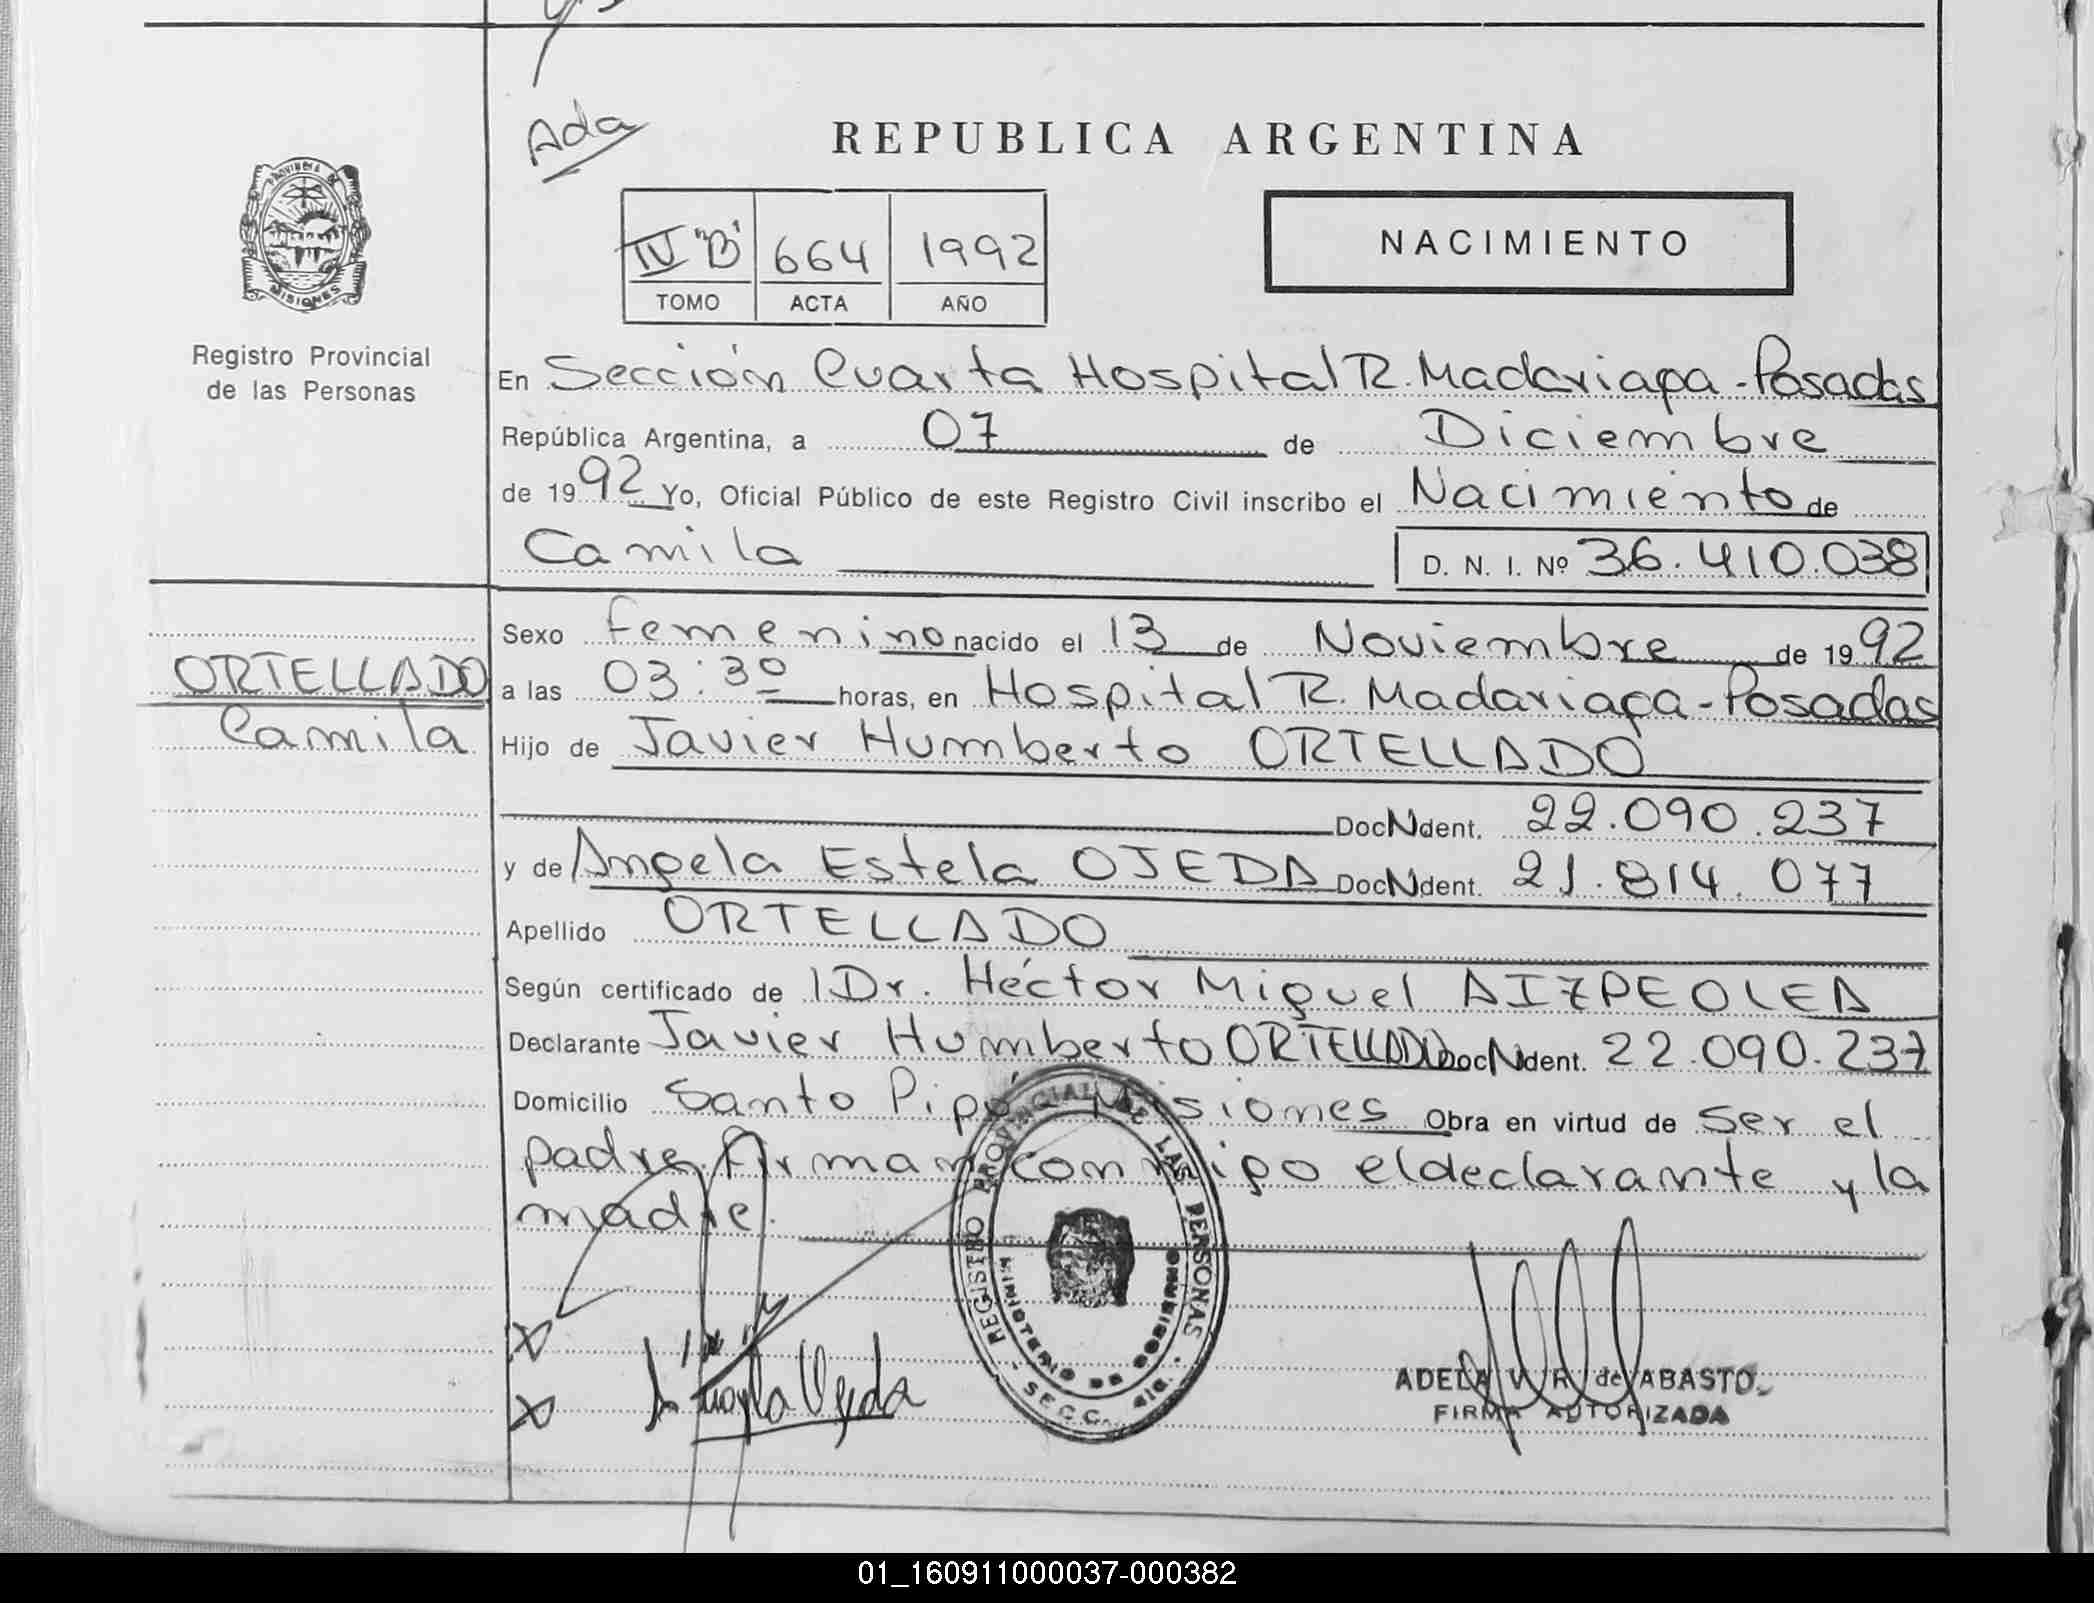 Ada
REPUBLICA ARGENTINA
PROVINCIA DE
MISIONES
IV "B" 664 1992
TOMO ACTA AÑO
NACIMIENTO
Registro Provincial
de las Personas
En Sección Cuarta Hospital R. Madariaga - Posadas
República Argentina, a 07 de Diciembre
de 1992 Yo, Oficial Público de este Registro Civil inscribo el Nacimiento de
Camila D. N. I. Nº 36.410.038
ORTELLADO
Camila
Sexo femenino nacido el 13 de Noviembre de 1992
a las 03:30 horas, en Hospital R. Madariaga - Posadas
Hijo de Javier Humberto ORTELLADO
Doc N dent. 22.090.237
y de Angela Estela OJEDA Doc N dent. 21.814.077
Apellido ORTELLADO
Según certificado de l Dr. Héctor Miguel AIZPEOLEA
Declarante Javier Humberto ORTELLADO Doc N dent. 22.090.237
Domicilio Santo Pipó Misiones Obra en virtud de ser el
padre. Firman conmigo el declarante y la
madre.
REGISTRO PROVINCIAL DE LAS PERSONAS
MINISTERIO DE GOBIERNO
SECC. DIP.
Ojeda
ADELA V. R. de ABASTO
FIRMA AUTORIZADA
01_160911000037-000382